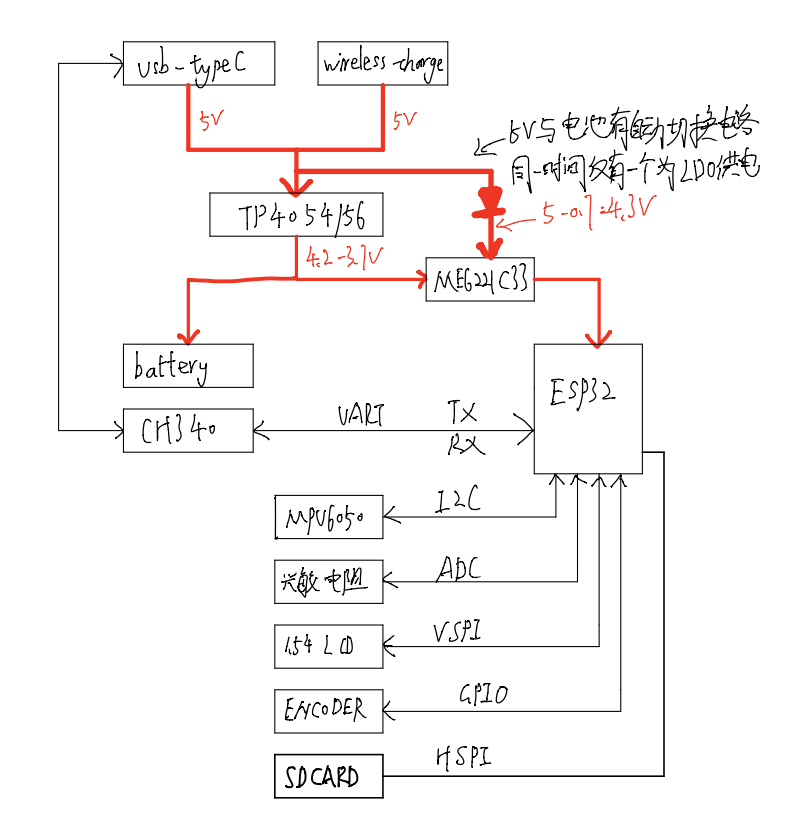 usb-typeC
wireless-charge
5V
5V
5V与电池有自动切换电路
同一时间仅有一个为LDO供电
TP4054/56
5-0.7=4.3V
4.2-3.7V
ME6221C33
battery
ESP32
CH340
UART
TX
RX
MPU6050
I2C
光敏电阻
ADC
1.54 LCD
VSPI
ENCODER
GPIO
SDCARD
HSPI